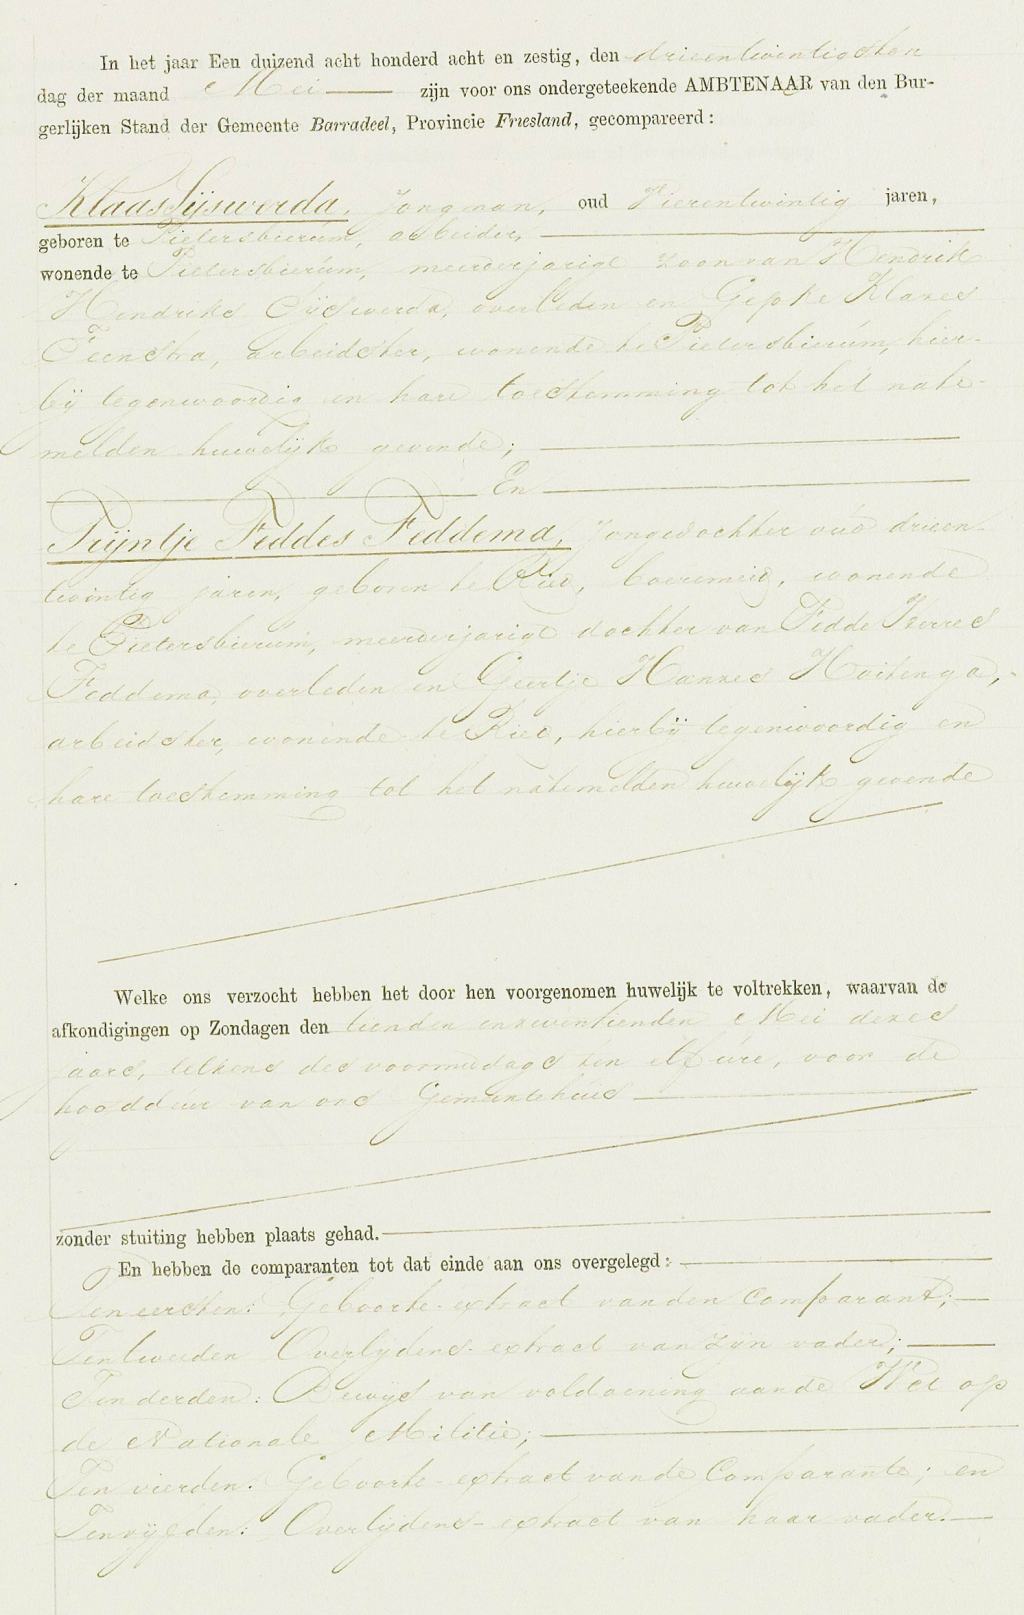 In het jaar Een duizend acht honderd acht en zestig, den drieentwintigsten
dag der maand Mei zijn voor ons ondergeteekende AMBTENAAR van den Bur-
gerlijken Stand der Gemeente Barradeel, Provincie Friesland, gecompareerd:
Klaas Sijswerda, Jongman, oud Vierentwintig jaren,
geboren te Pietersbierum, arbeider,
wonende te Pietersbierum, meerderjarige zoon van Hendrik
Hendriks Sijswerda, overleden en Gepke Klazes
Feenstra, arbeidster, wonende te Pietersbierum, hier-
bij tegenwoordig en hare toestemming tot het nate-
melden huwelijk gevende;
En
Trijntje Feddes Feddema, Jongedochter oud drieen-
twintig jaren, geboren te Ried, boeremeid, wonende
te Pietersbierum, meerderjarige dochter van Fedde
Feddema, overleden en Geertje Hanzes Hoitenga,
arbeidster, wonende te Ried, hierbij tegenwoordig en
hare toestemming tot het natemelden huwelijk gevende
Welke ons verzocht hebben het door hen voorgenomen huwelijk te voltrekken, waarvan de
afkondigingen op Zondagen den tienden en zeventienden Mei dezes
jaars, telkens des voormiddags ten elf ure, voor de
hoofddeur van ons Gemeentehuis
zonder stuiting hebben plaats gehad.
En hebben de comparanten tot dat einde aan ons overgelegd:
Ten eersten: Geboorte-extract van den Comparant;
Ten tweeden Overlijdens-extract van zijn vader;
Ten derden: Bewijs van voldoening aan de Wet op
de Nationale Militie;
Ten vierden: Geboorte-extract van de Comparante; en
Ten vijfden: Overlijdens-extract van haar vader.